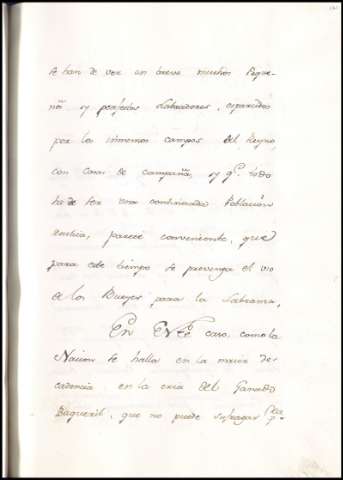 se han de ver en breve muchos Peque-
ños y perfectos Labradores, esparcidos
por los inmensos campos del Reyno
con Casas de campaña, y q.e todo
ha de ser una continuada Poblacion
rustica, parece conveniente, que
para este tiempo se prevenga el uso
de los Bueyes para la Labranza,
En Este caso, como la
Nacion se halla en la maior de-
cadencia en la cria del Ganado
Baqueril, que no puede sufragar